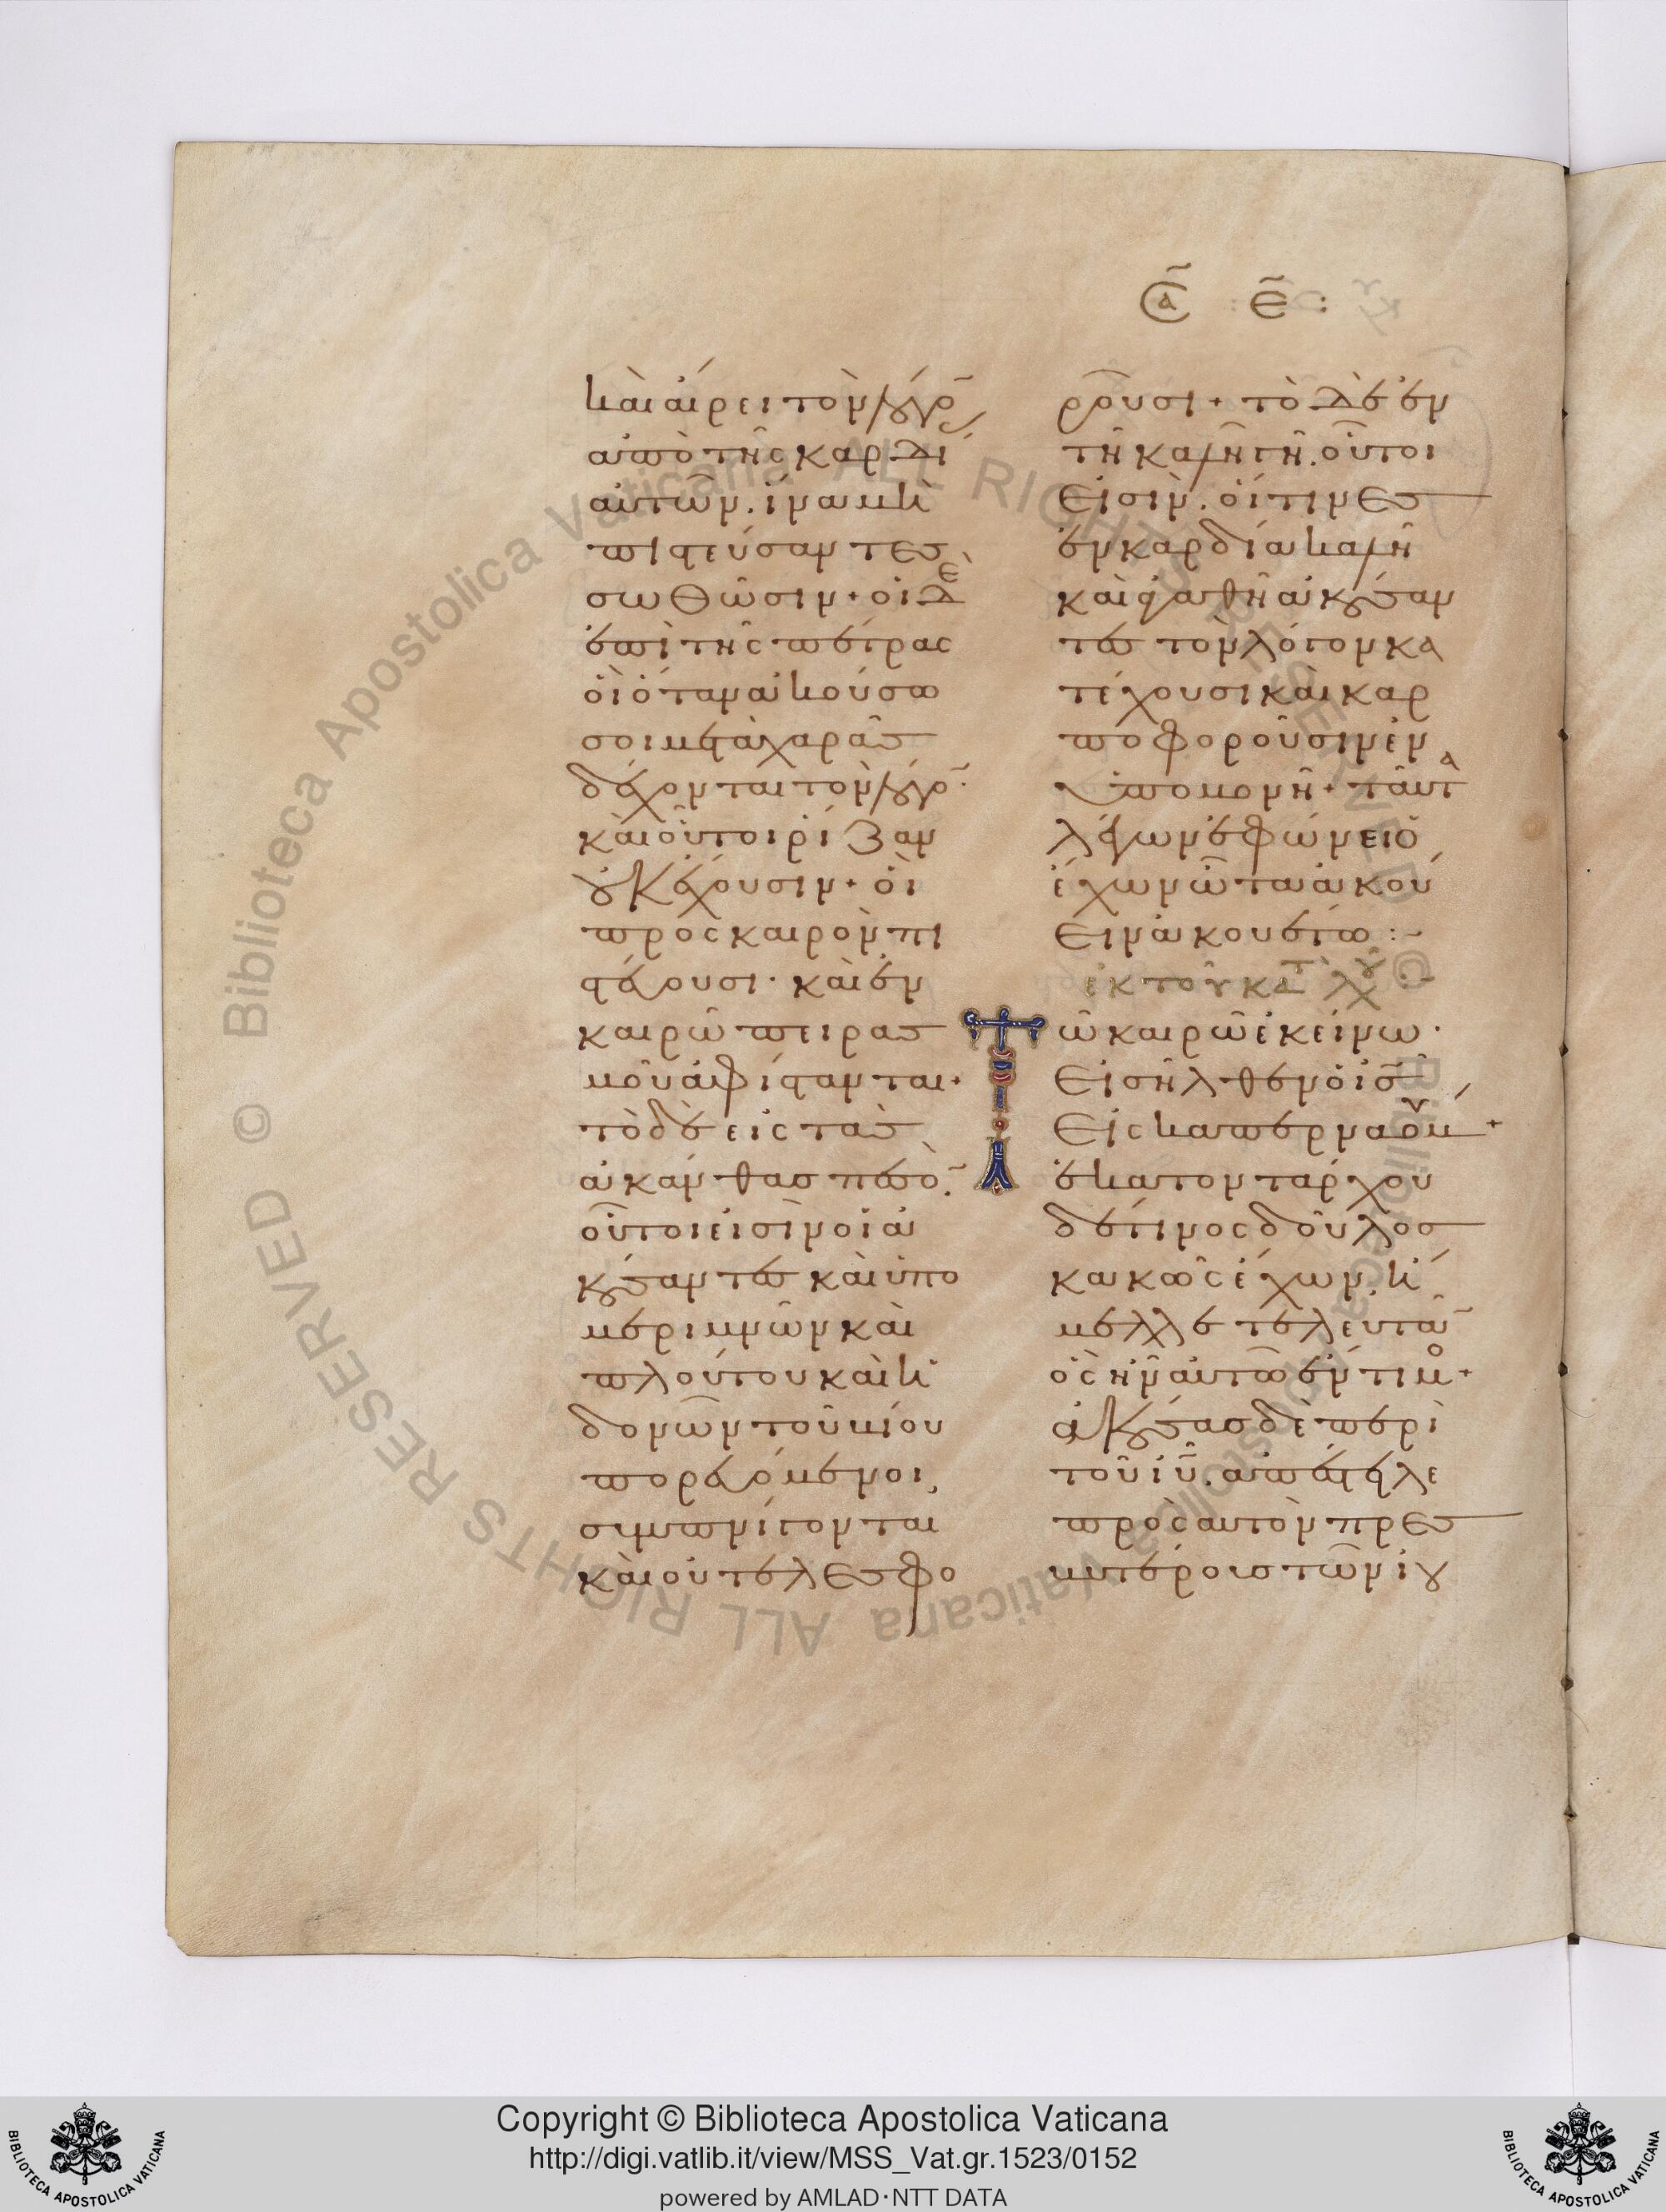 Σα ε :
καὶ αἴρει τὸν λόγο
ἀπὸ τῆς καρδί
αὐτῶν. ἵνα μὴ
πιστεύσαντες
σωθῶσιν + οἱ δὲ
ἐπὶ τῆς πέτρας
οἳ ὅταν ἀκούσω
σοι μετὰ χαρᾶς
δέχονται τὸν λόγο.
καὶ οὗτοι ῥίζαν
οὐκ ἔχουσιν + οἳ
προς καιρὸν πι
στεύουσι. καὶ ἐν
καιρῶ πειρασ
μοῦ ἀφίστανται +
τὸ δὲ εἰς τὰς
ἀκάνθας πεσὸ.
οὗτοι εἰσὶν οἱ ἀ
κούσαντες καὶ ὑπο
μεριμνῶν καὶ
πλούτου καὶ ἡ
δονῶν τοῦ βίου
πορευόμενοι,
συμπνίγονται
καὶ οὐ τελεσφο
ροῦσι + τὸ δὲ ἐν
τῆ καλῆ γῆ. οὗτοι
εἰσὶν. οἵτινες
ἐν καρδία καλῆ
καὶ ἀγαθῆ ἀκούσαν
τες τὸν λόγον κα
τέχουσι καὶ καρ
ποφοροῦσιν ἐν
ὑπομονῆ + ταῦτα
λέγων ἐφώνει ὁ
ἔχων ὦτα ἀκού
ειν ἀκουέτω :-
ἐκ τοῦ κατὰ λουκ :-
Τῶ καιρῶ ἐκείνω.
Εἰσῆλθεν ὁ ἰσ
Εἰς καπερναούμ +
ἑκατοντάρχου
δέ τινος δοῦλος
κακῶς ἔχων, ἤ
μελλε τελευτᾶ
ὃς ἦν αὐτῶ ἔντιμο +
ἀκούσας δὲ περὶ
τοῦ ἰυ. ἀπέστειλε
πρὸς αὐτὸν πρεσ
βυτέρους τῶν ἰου
Copyright © Biblioteca Apostolica Vaticana
http://digi.vatlib.it/view/MSS_Vat.gr.1523/0152
powered by AMLAD·NTT DATA
BIBLIOTECA APOSTOLICA VATICANA
BIBLIOTECA APOSTOLICA VATICANA
© Biblioteca Apostolica Vaticana ALL RIGHTS RESERVED © Biblioteca Apostolica Vaticana ALL RIGHTS RESERVED